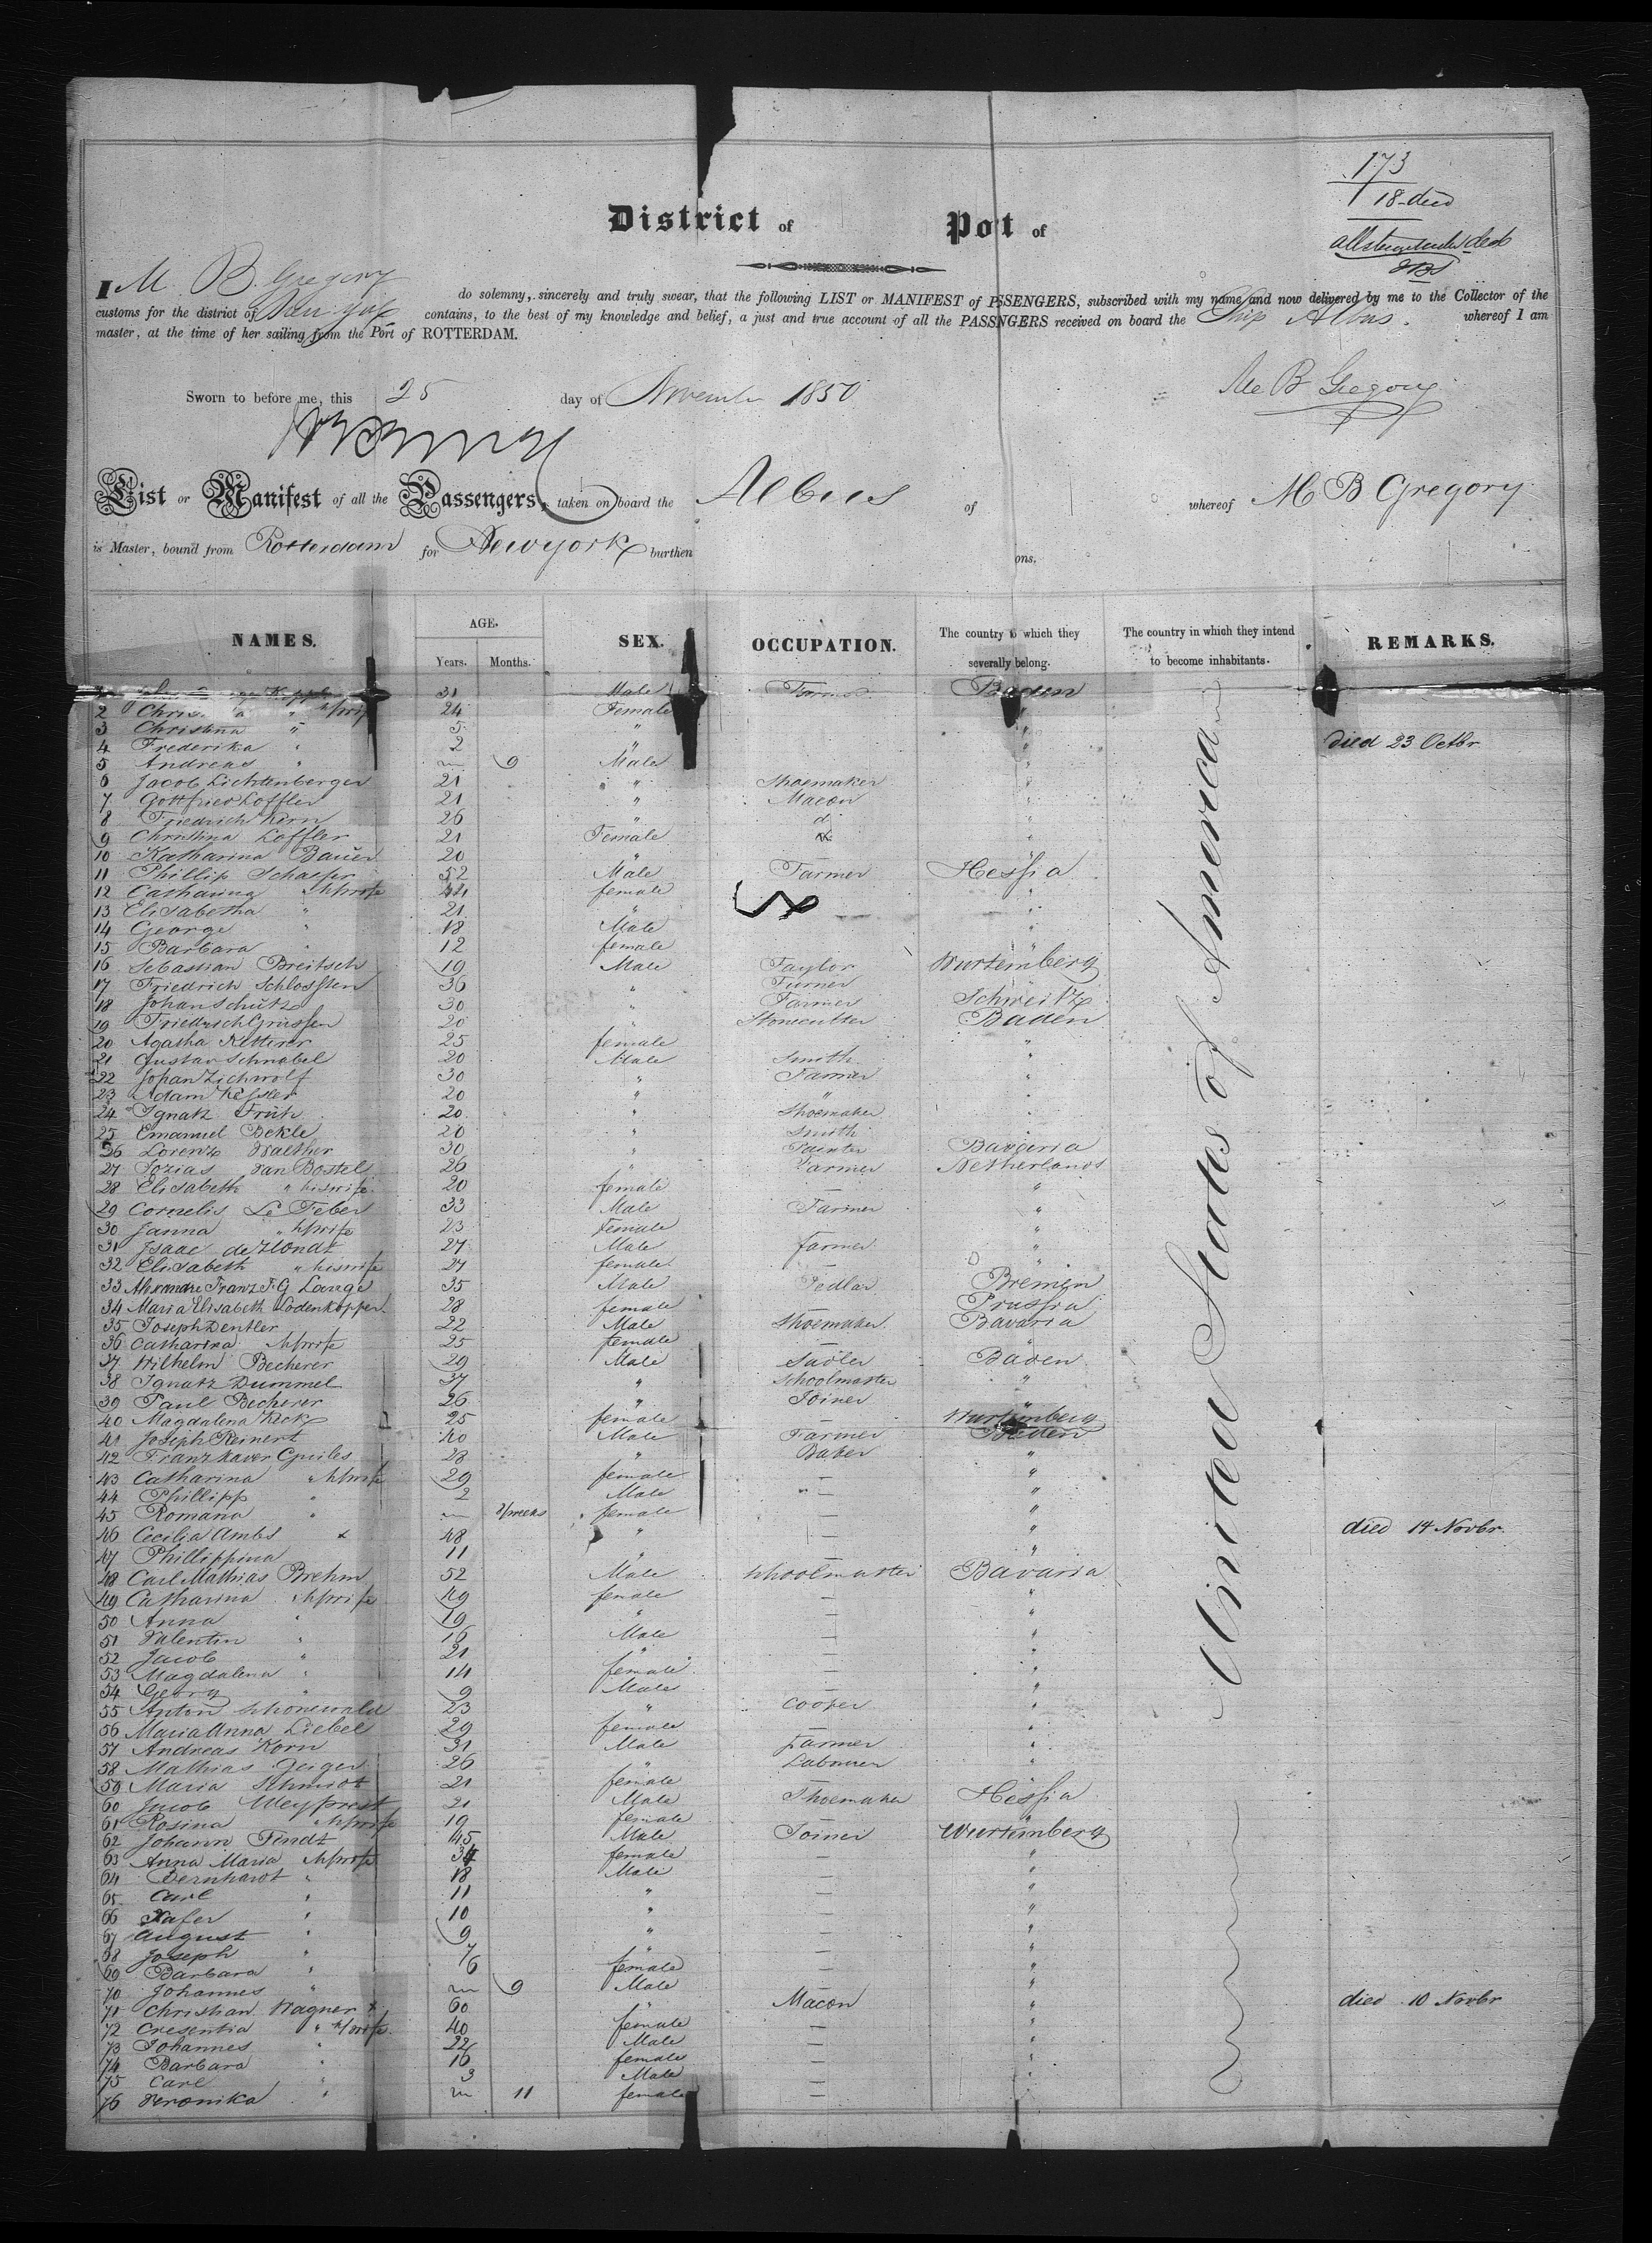 173
18 died
District of Pot of
I M B. Gregory do solemny, sincerely and truly swear, that the following LIST or MANIFEST of PSSENGERS, subscribed with my name and now delivered by me to the Collector of the
customs for the district of New York contains, to the best of my knowledge and belief, a just and true account of all the PASSNGERS received on board the Ship Albus. whereof I am
master, at the time of her sailing from the Port of ROTTERDAM.
M B Gregory
Sworn to before me, this 25 day of November 1850
List or Manifest of all the Passengers, taken on board the Albus of whereof M B Gregory
is Master, bound from Rotterdam for Newyork burthen ons.
NAMES. AGE. Years. Months. SEX. OCCUPATION. The country to which they severally belong. The country in which they intend to become inhabitants. REMARKS.
31 Male Farmer Baden
2 24 Female "
3 Christina " 5 " "
4 Frederika " 2 " " Died 23 Octbr
5 Andreas " — 9 Male "
6 Jacob Lichtenberger 21 " Shoemaker "
7 Gottfried Loffler 21 " Macon "
8 Friedrich Kern 26 " d "
9 Christina Loffler 21 Female "
10 Katharina Bauer 20 " — "
11 Phillip Schaffer 52 Male Farmer Hessia
12 Catharina " h/wife female "
13 Elisabetha " 21 " — "
14 George " 18 Male "
15 Barbara " 12 female "
16 Sebastian Breitsch 19 Male Taylor Wurtemberg
17 Friedrich Schlossten 36 " Turner "
18 Johan Schutz 30 " Farmer Schweitz
19 Friedrich Grussen 20 " Stonecutter Baden
20 Agatha Ketterer 25 female "
21 Gustav Schnabel 20 Male Smith "
22 Johan Zichwolf 30 " Farmer "
23 Adam Kessler 20 " " "
24 Ignatz Früh 20 " Shoemaker "
25 Emanuel Bekle 20 " Smith "
26 Lorenz Walther 30 " Painter Bavaria
27 Jozias van Bostel 26 " Farmer Netherlands
28 Elisabeth " his wife 20 female — "
29 Cornelis Le Feber 33 Male Farmer "
30 Janna " h/wife 23 Female "
31 Isaac de Hondt 27 Male farmer "
32 Elisabeth " his wife 27 female — "
33 Alexandre Franz F.G Lange 35 Male Pedlar Bremen
34 Maria Elisabeth Lodenkopper 28 female Prussia
35 Joseph Dentler 22 Male Shoemaker Bavaria
36 Catharina h/wife 25 female — "
37 Wilhelm Becherer 29 Male Sadler Baden
38 Ignatz Dummel 37 " Schoolmaster "
39 Paul Becherer 26 " Joiner "
40 Magdalena Keck 25 female — Wurtemberg
41 Joseph Reinert 40 Male Farmer Baden
42 Franz Xaver Gruiles 28 " Baker "
43 Catharina " h/wife 29 female — "
44 Phillipp " 2 Male — "
45 Romana " — 2/weeks female — "
46 Cecilia Ambs x 48 " — " died 14 Novbr.
47 Phillippina 11 " — "
48 Carl Mathias Brehm 52 Male Schoolmaster Bavaria
49 Catharina h/wife 49 female — "
50 Anna " 19 " — "
51 Valentin " 16 Male — "
52 Jacob " 21 " — "
53 Magdalena " 14 female — "
54 Georg " 9 Male — "
55 Anton Schonewald 23 " Cooper "
56 Maria Anna Liebel 29 female — "
57 Andreas Korn 31 Male Farmer "
58 Mathias Geiger 26 " Labourer "
59 Maria Schmidt 21 female — "
60 Jacob 21 Male Shoemaker Hessia
61 Rosina " h/wife 19 female — "
62 Johann Findt 45 Male Joiner Wurtemberg
63 Anna Maria h/wife 34 female — "
64 Bernhardt " 18 Male — "
65 Carl " 11 " — "
66 Xafer " 10 " — "
67 August " 9 " — "
68 Joseph " 7 " — "
69 Barbara " 6 female — "
70 Johannes " — 9 Male — "
71 Christian Wagner x 60 " Macon " died 10 Novbr
72 Cresentia " h/wife 40 female — "
73 Johannes " 22 Male — "
74 Barbara " 16 female — "
75 Carl " 3 Male — "
76 Veronika " — 11 female — "
United States of America